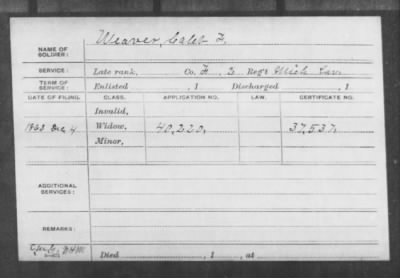 NAME OF SOLDIER: Weaver, Caleb F.
SERVICE: Late rank, Co. F, 3 Reg't Mich Cav
TERM OF SERVICE: Enlisted , 1 Discharged , 1
DATE OF FILING. CLASS. APPLICATION NO. LAW. CERTIFICATE NO.
Invalid,
1863 Dec 4 Widow, 40,220, 37,537,
Minor,
ADDITIONAL SERVICES:
REMARKS:
Died , 1 , at